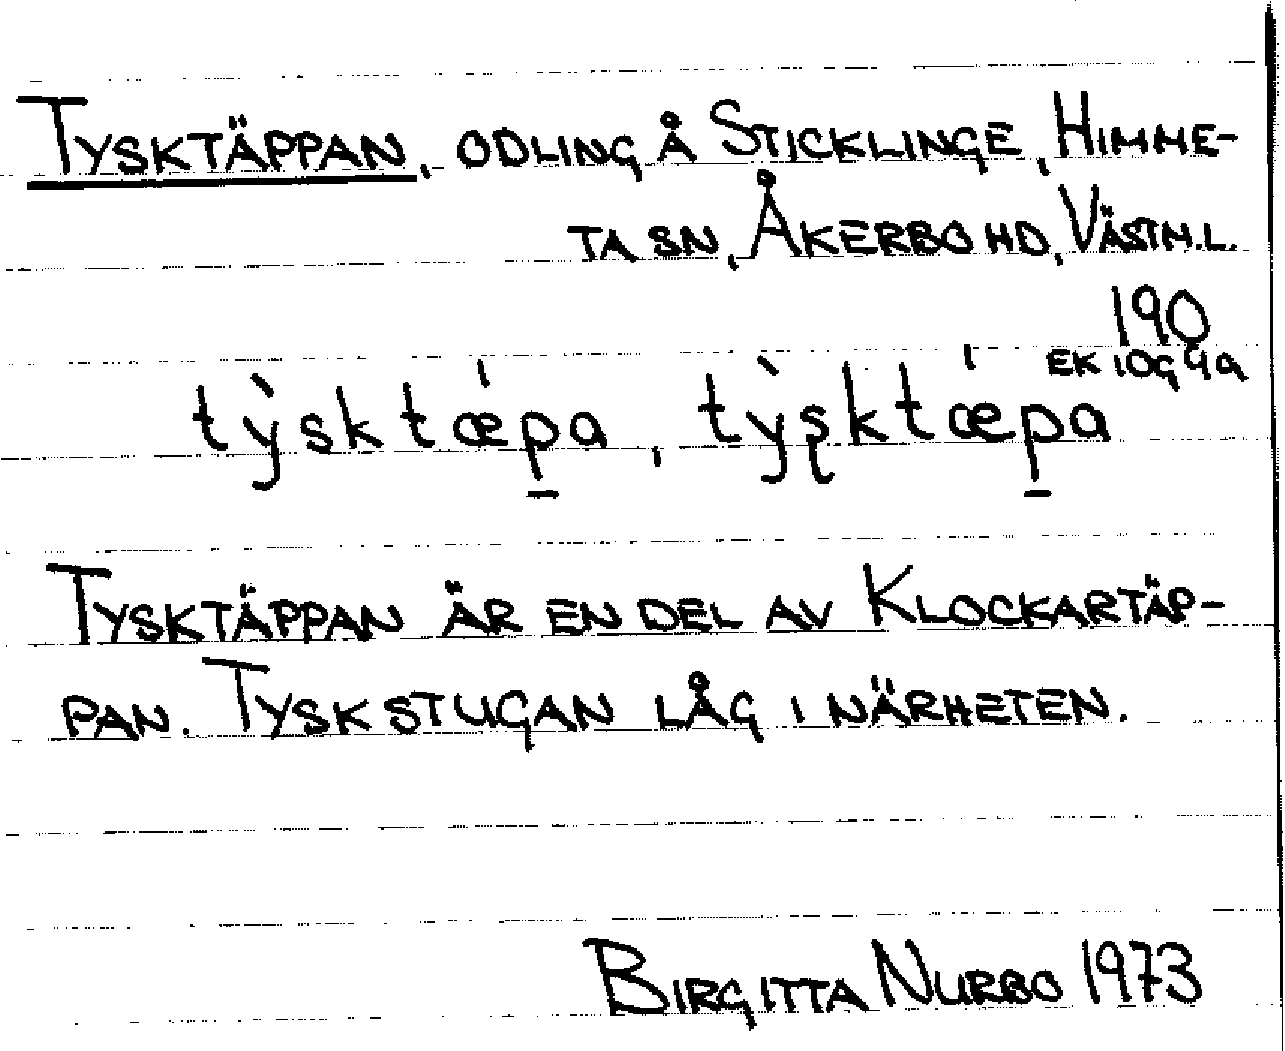 TYSKTÄPPAN, ODLING Å STICKLINGE, HIMME-
TA SN, ÅKERBO HD, VÄSTM.L.
190
EK 10G 4a
tỳsktǽp̲a, tỳʂktǽp̲a
TYSKTÄPPAN ÄR EN DEL AV KLOCKARTÄP-
PAN. TYSKSTUGAN LÅG I NÄRHETEN.
BIRGITTA NURBO 1973